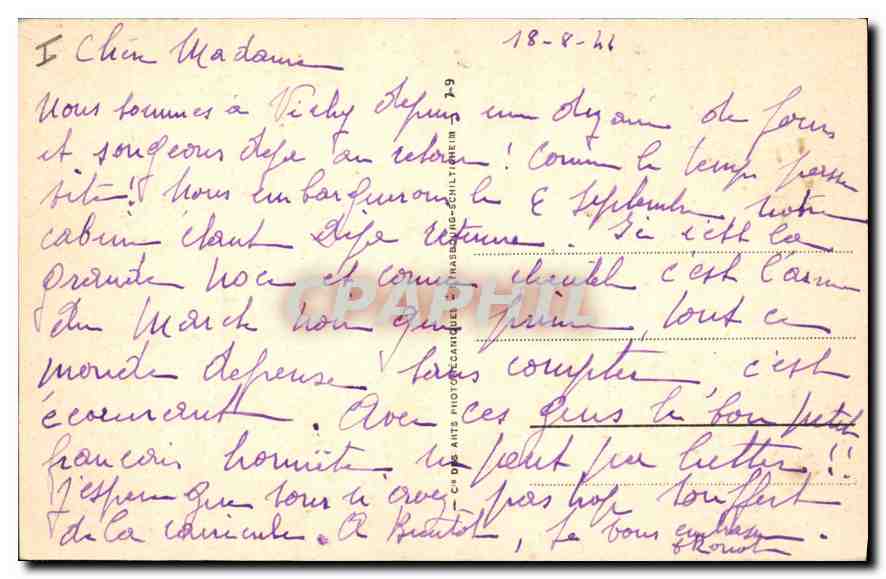 I Chère Madame 18-8-46
Nous sommes à Vichy depuis une dizaine de jours
et songeons déjà au retour! Comme le temps passe
vite! Nous embarquerons le 8 Septembre notre
cabine étant déjà retenue. Ici c'est la
grande noce et comme clientèle c'est l'arme
du March noir qui prime, tout ce
monde dépense sans compter, c'est
écoeurant. Avec ces gens le bon petit
français honnête ne peut pas lutter!!
J'espère que vous n'avez pas trop souffert
de la canicule. A Bientôt, Je vous embrasse
CPAPHIL
— Cie DES ARTS PHOTOMÉCANIQUES - STRASBOURG-SCHILTIGHEIM — 7-9